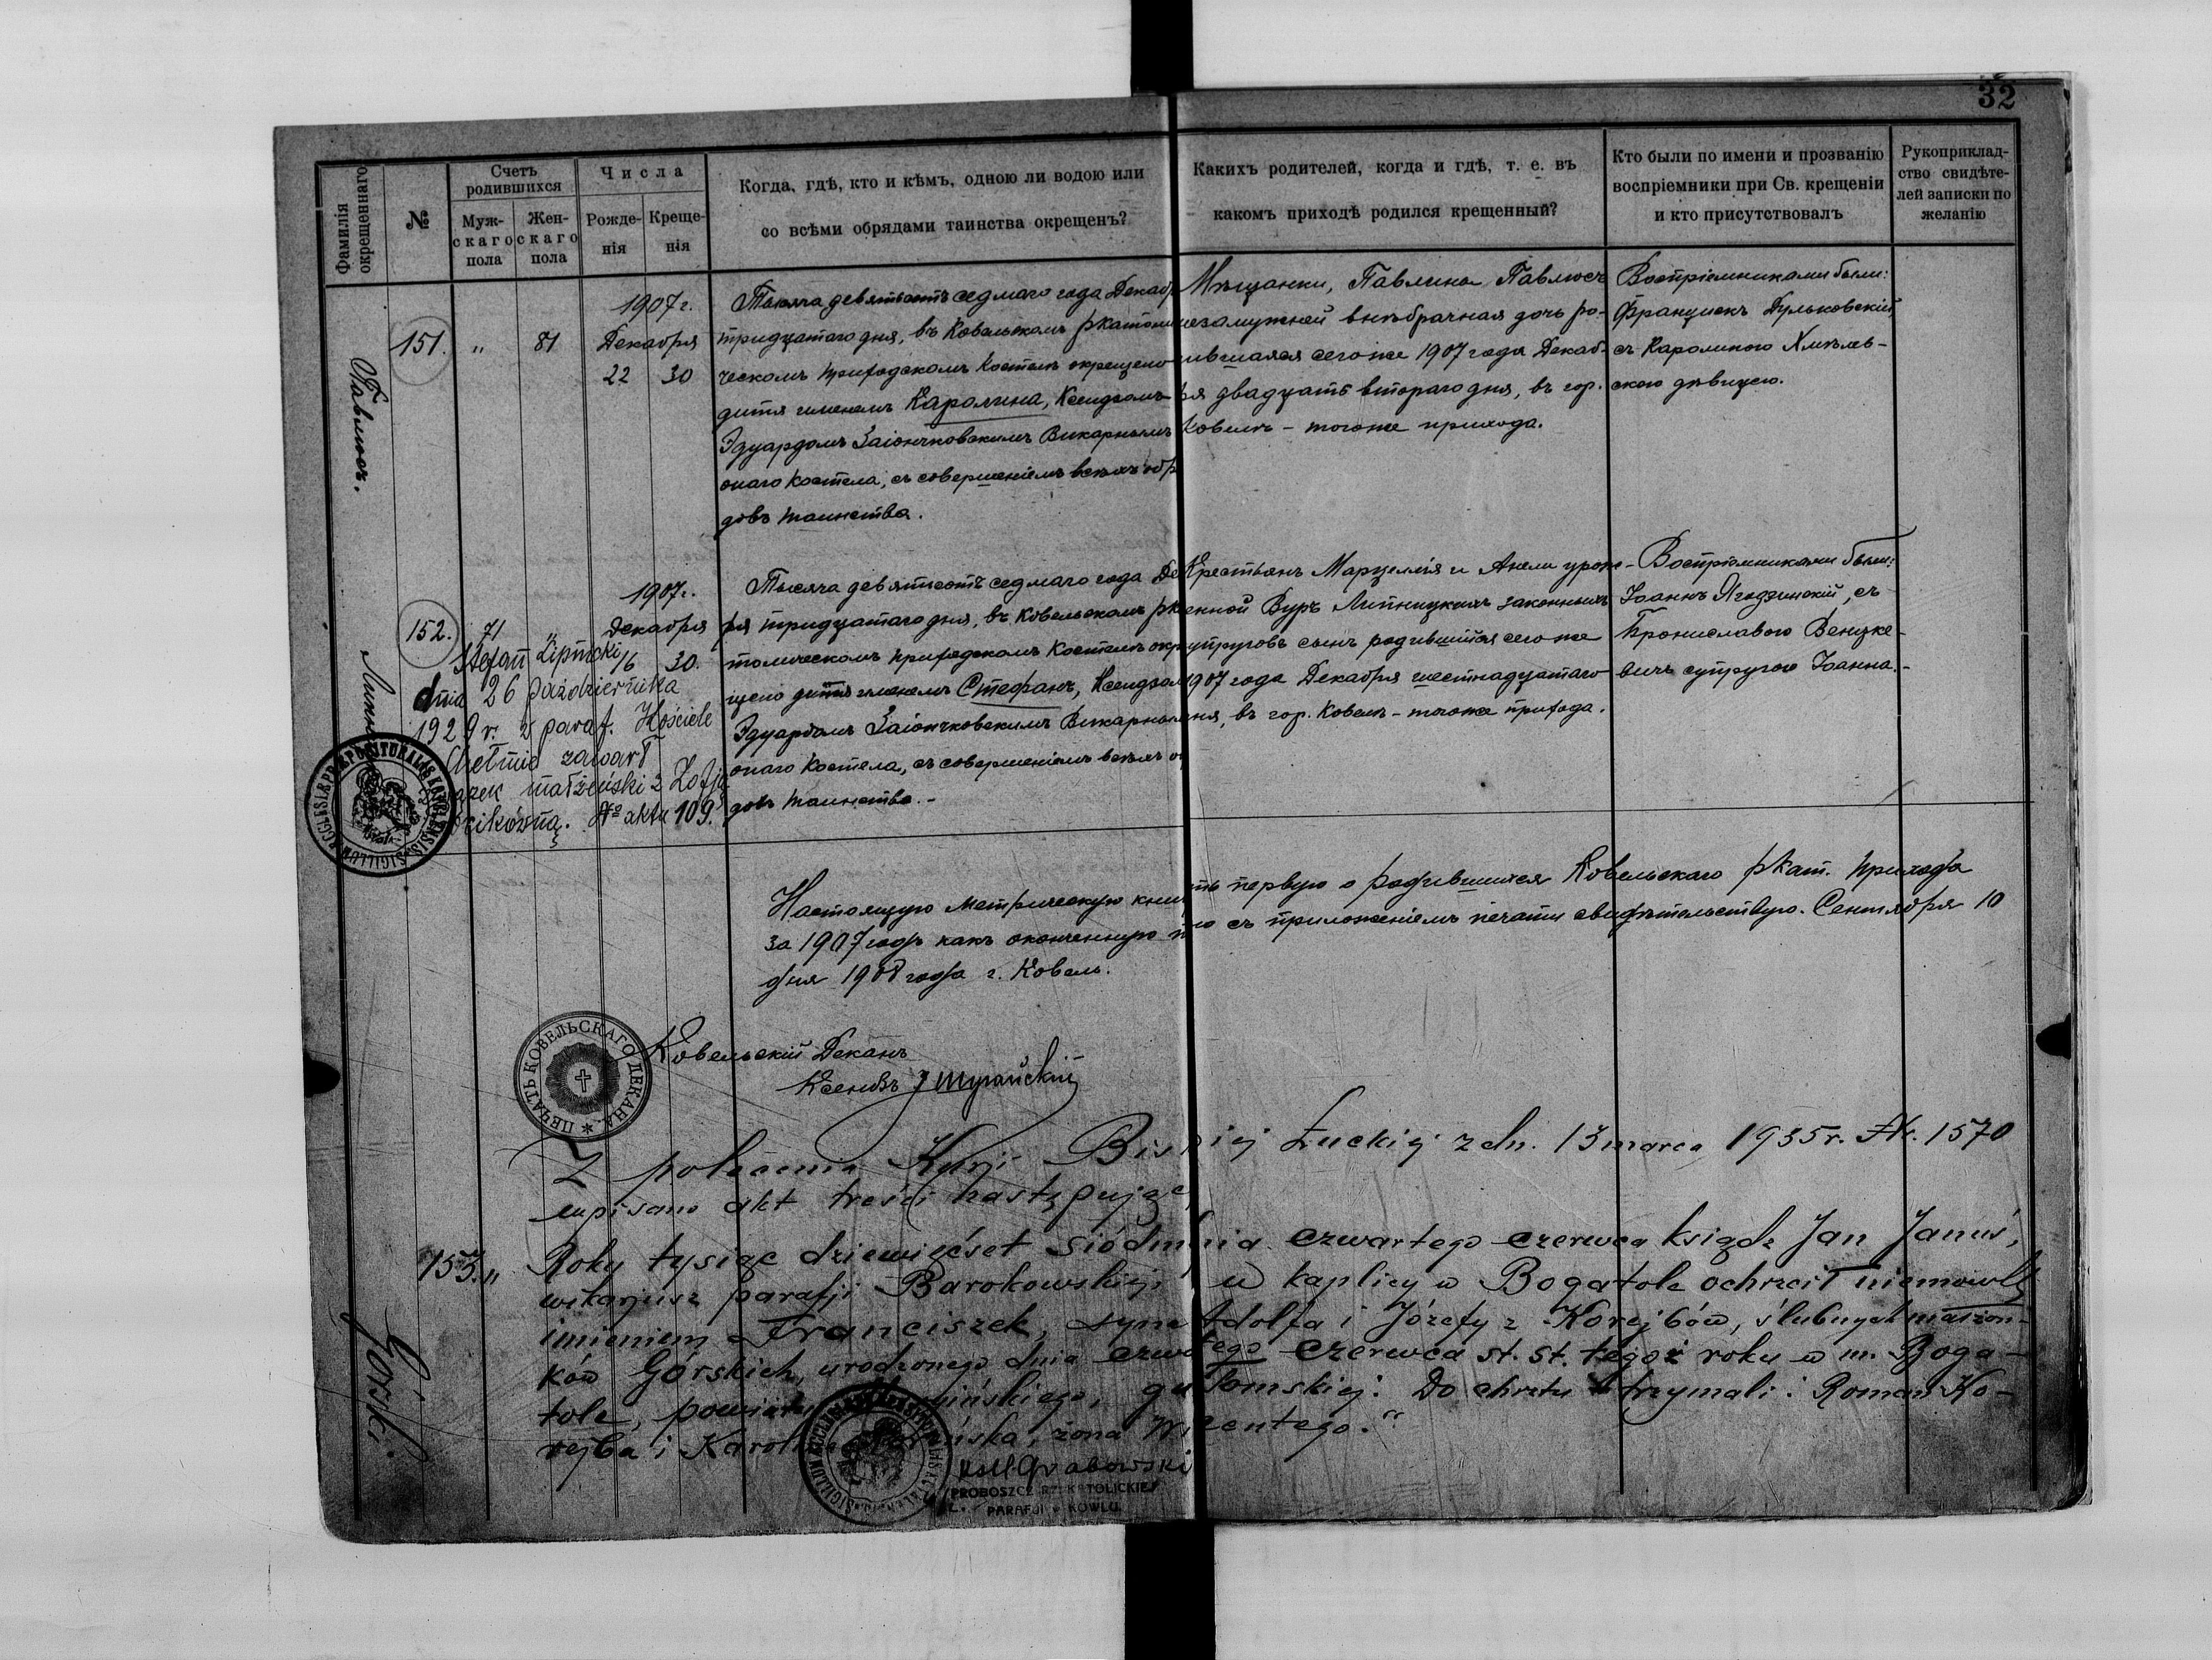 32
Фамилія окрещеннаго
№
Счетъ родившихся
Муж-скаго пола
Жен-скаго пола
Числа
Рожде-нія
Креще-нія
Когда, гдѣ, кто и кѣмъ, одною ли водою или
со всѣми обрядами таинства окрещенъ?
Какихъ родителей, когда и гдѣ, т. е. въ
какомъ приходѣ родился крещенный?
Кто были по имени и прозванію
воспріемники при Св. крещеніи
и кто присутствовалъ
Рукоприклад-
ство свидѣте-
лей записки по
желанію
Павлюсъ.
151.
"
81
1907 г.
Декабря
22 30
Тысяча девятьсотъ седмаго года Декаб
тридцатаго дня, въ Ковельскомъ ркатоли
ческомъ приходскомъ Костелѣ окрещено
дитя именемъ Каролина, Ксендзомъ
Эдуардомъ Заіончковскимъ Викарнымъ
онаго Костела, съ совершеніемъ всѣхъ обр
довъ таинства.
Мѣщанки, Павлина Павлюсъ
незамужней внѣбрачная дочь ро-
дившаяся сего же 1907 года Декаб-
ря двадцать втораго дня, въ гор.
Ковелѣ - того же прихода.
Воспріемниками были:
Францискъ Дульковскій
съ Каролиною Хмѣлев-
скою дѣвицею.
152.
71
"
1907 г.
Декабря
16 30.
Тысяча девятьсотъ седмаго года Де
ря тридцатаго дня, въ Ковельскомъ рк
толическомъ приходскомъ Костелѣ окр
щено дитя именемъ Стефанъ, Ксендзом
Эдуардомъ Заіончковскимъ Викарным
онаго Костела, съ совершеніемъ всѣхъ о
довъ таинства.-
Крестьянъ Марцеллія и Анели урож-
енной Вуръ Липницкихъ законныхъ
супруговъ сынъ родившійся сего же
1907 года Декабря шестнадцатаго
дня, въ гор. Ковелѣ - того же прихода.
Воспріемниками были:
Іоаннъ Ягодзинскій, съ
Брониславою Венцке-
вичъ супругою Іоанна.-
Stefan Lipnicki
dnia 26 października
1929 r. w paraf. Kościele
Chełmie zawarł
małżeński z Zofją
№ aktu 109.
Настоящую метрическую книг
ть первую о родившихся Ковельскаго ркат. прихода
за 1907 годъ какъ оконченную
съ приложеніемъ печати свидѣтельствую. Сентября 10
дня 1908 года г. Ковель.
Ковельскій Деканъ
Ксендзъ
ПЕЧАТЬ КОВЕЛЬСКАГО ДЕКАНА
Z polecenia Kurji Bis iej Łuckiej z dn. 13 marca 1935 r. Nr. 1570
wpisano akt treści następując
153. "
Górski.
Roku tysiąc dziewięćset siódm nia czwartego czerwca ksiądz Jan Januś,
wikarjusz parafji Barokowskiej w kaplicy w Bogatole ochrzcił niemowlę
imieniem Franciszek, syna Adolfa i Józefy z Korejbów, ślubnych małżon-
ków Górskich, urodzonego dnia czwartego czerwca st. st. tegoż roku w m. Boga-
tole, powiatu ińskiego, gu Tomskiej. Do chrztu trzymali: Roman Ko-
rejba i Karol ińska, żona Wincentego."
Ks. Grabowski
PROBOSZCZ RZ. KATOLICKIEJ
PARAFJI w KOWLU